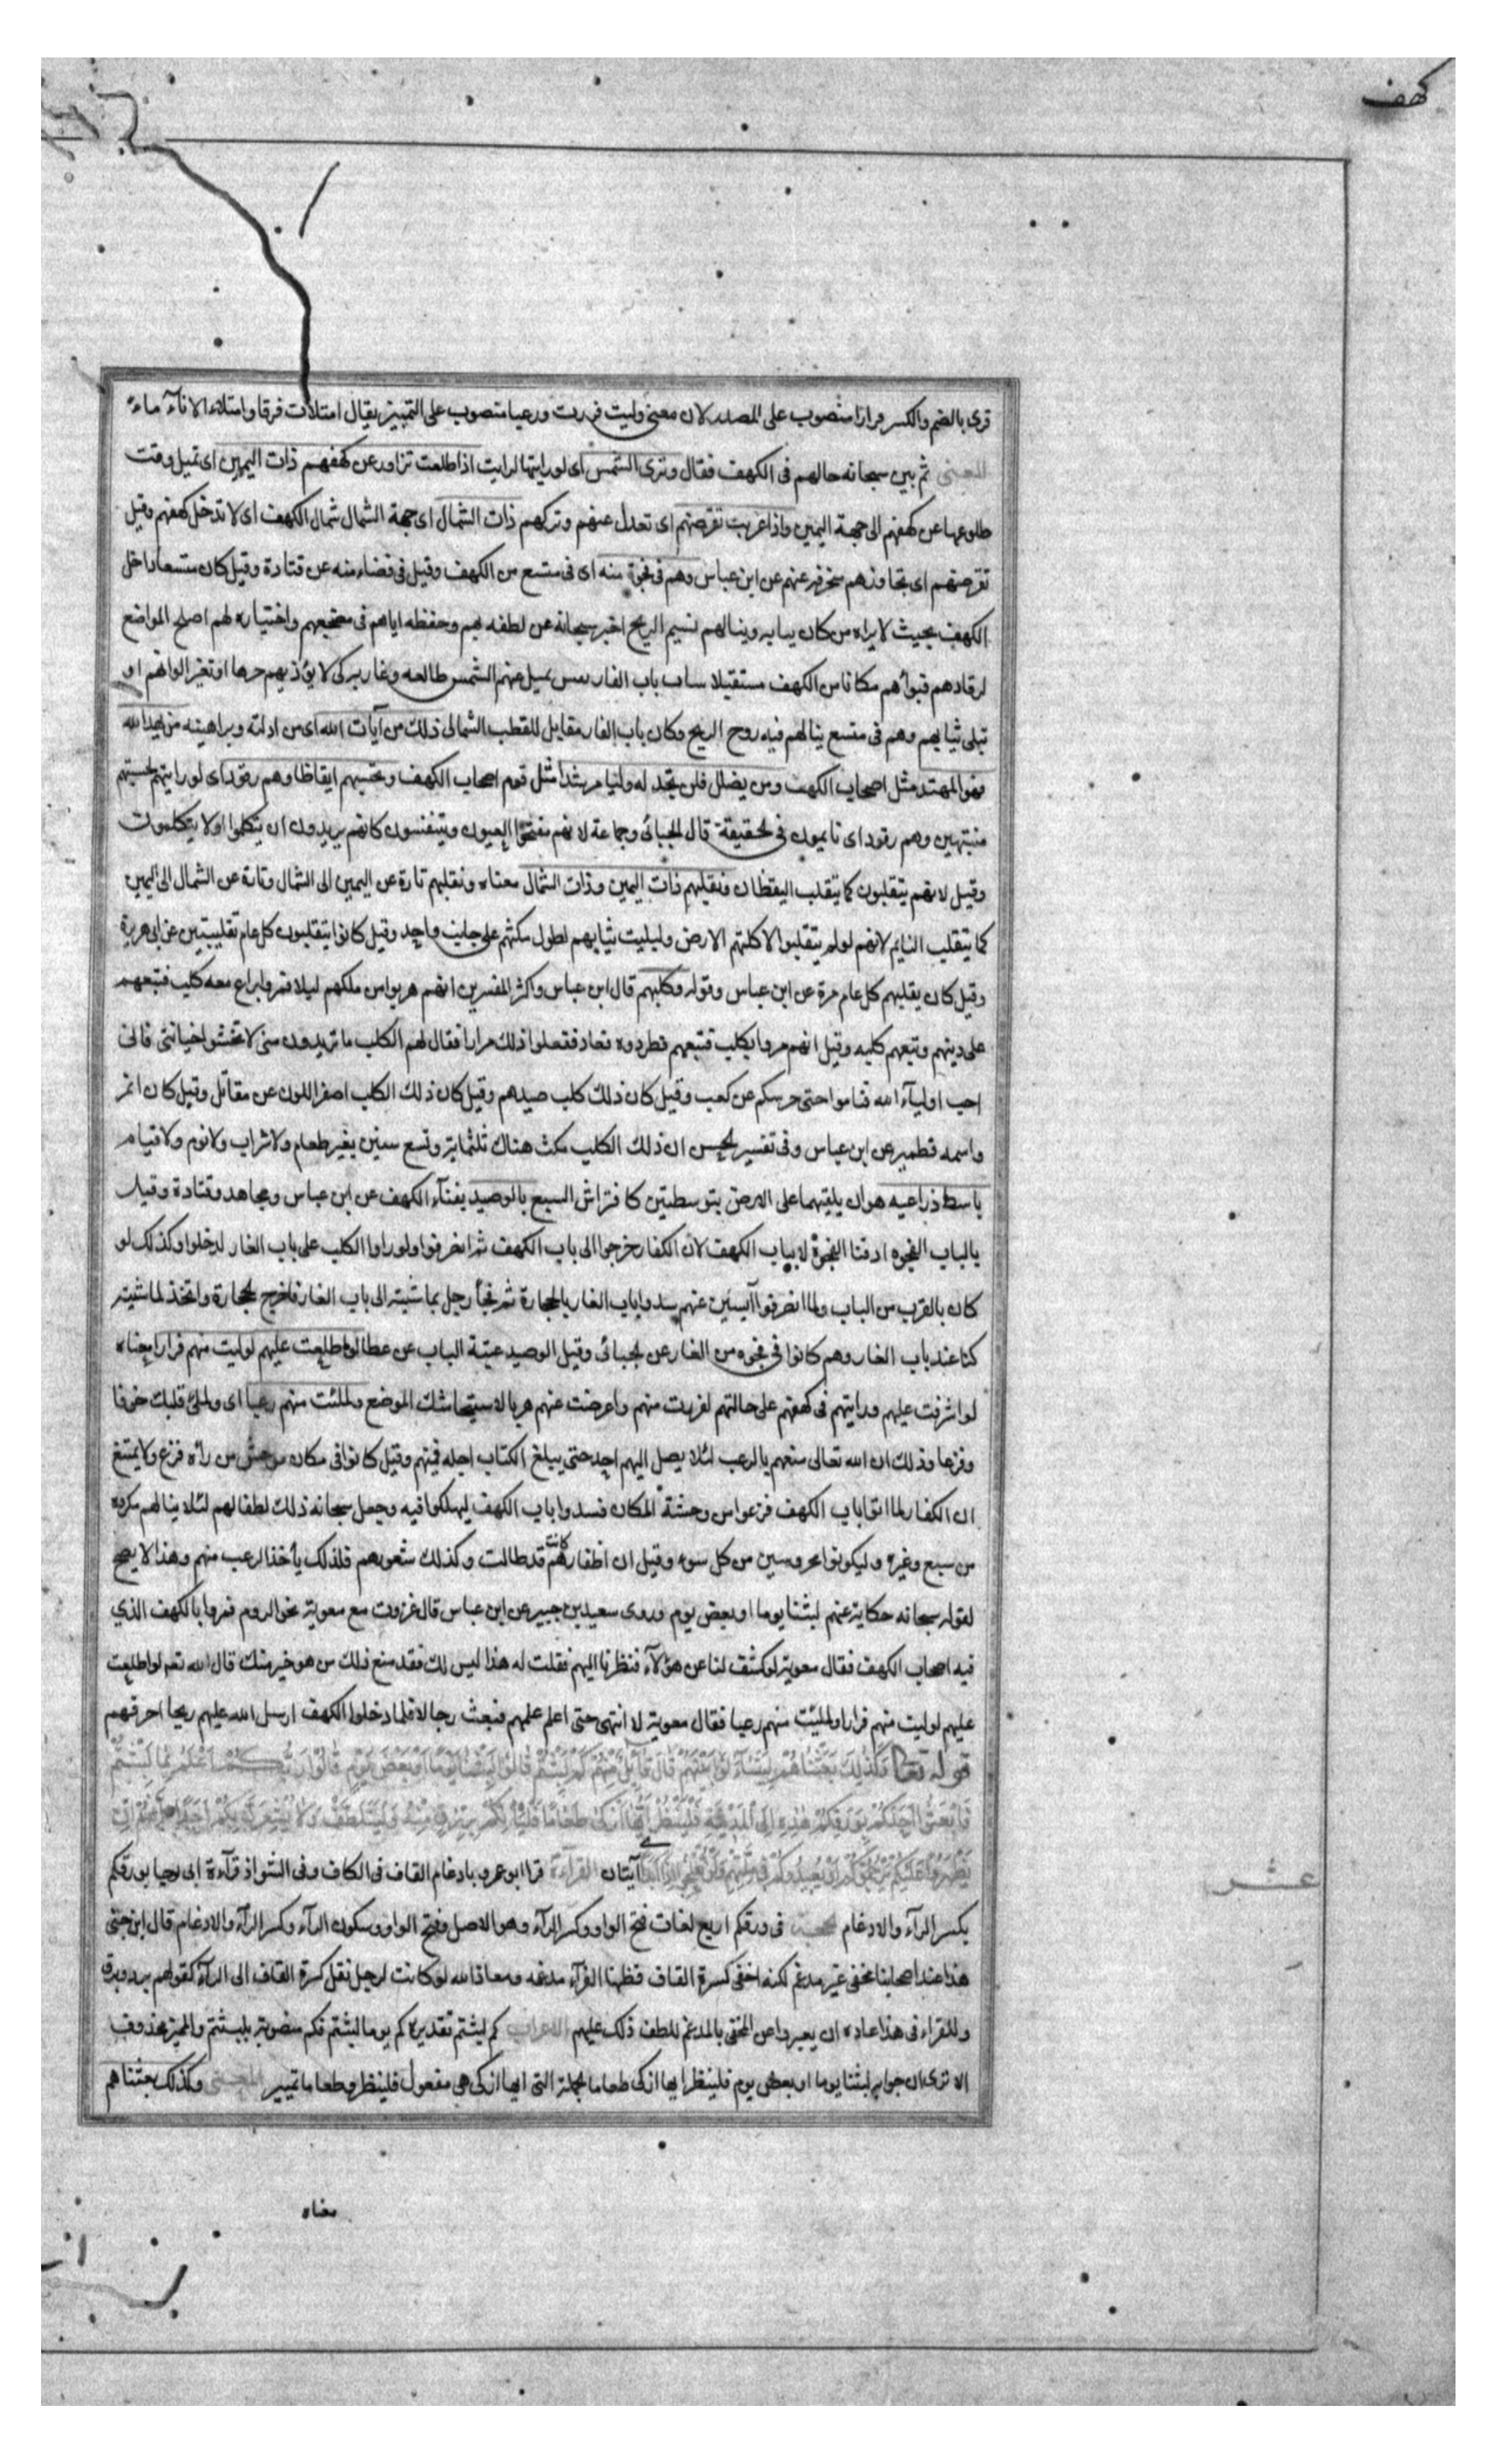 كهف
قرى بالضم والكسر فرارا منصوب على المصدر لان معنى وليت فررت ورعبا منصوب على التمييز يقال امتلأت فرقا وامتلاء الاناء ماء
المعنى ثم بين سبحانه حالهم فى الكهف فقال وترى الشمس اى لو رايتها لرايت اذا طلعت تزاور عن كهفهم ذات اليمين اى تميل وقت
طلوعها عن كهفهم الى جهة اليمين واذا غربت تقرضهم اى تعدل عنهم وتتركهم ذات الشمال اى جهة الشمال شمال الكهف اى لا تدخل كهفهم وقيل
تقرضهم اى تجاوزهم منحرفة عنهم عن ابن عباس وهم فى فجوة منه اى فى متسع من الكهف وقيل فى فضاء منه عن قتادة وقيل كان متسعا داخل
الكهف بحيث لا يراه من كان ببابه وينالهم نسيم الريح اخبر سبحانه عن لطفه بهم وحفظه اياهم فى مضجعهم واختياره لهم اصلح المواضع
لرقادهم فبوأهم مكانا من الكهف مستقبلا باب الغار تميل عنهم الشمس طالعه وغاربه كى لا يؤذيهم حرها او تغير الوانهم او
تبلى ثيابهم وهم فى متسع ينالهم فيه روح الريح وكان باب الغار مقابل للقطب الشمالى ذلك من آيات الله اى من ادلته وبراهينه من يهد الله
فهو المهتد مثل اصحاب الكهف ومن يضلل فلن تجد له وليا مرشدا مثل قوم اصحاب الكهف وتحسبهم ايقاظا وهم رقود اى لو رايتهم لحسبتهم
منتبهين وهم رقود اى نايمون فى الحقيقة قال الجبائى وجماعة لانهم مفتحوا العيون ويتنفسون كانهم يريدون ان يتكلموا ولا يتكلمون
وقيل لانهم يتقلبون كما يتقلب اليقظان ونقلبهم ذات اليمين وذات الشمال معناه ونقلبهم تارة عن اليمين الى الشمال وتارة عن الشمال الى اليمين
كما يتقلب النايم لانهم لو لم يتقلبوا لاكلتهم الارض ولبليت ثيابهم لطول مكثهم على جانب واحد وقيل كانوا يتقلبون كل عام تقليبتين عن ابى هريرة
وقيل كان يقلبهم كل عام مرة عن ابن عباس وقوله وكلبهم قال ابن عباس واكثر المفسرين انهم هربوا من ملكهم ليلا فمروا براع معه كلب فتبعهم
على دينهم وتبعهم كلبه وقيل انهم مروا بكلب فتبعهم فطردوه فعاد ففعلوا ذلك مرارا فقال لهم الكلب ما تريدون منى لا تخشوا خيانتى فانى
احب اولياء الله فناموا حتى احرسكم عن كعب وقيل كان ذلك كلب صيدهم وقيل كان ذلك الكلب اصفر اللون عن مقاتل وقيل كان انمر
واسمه قطمير عن ابن عباس وفى تفسير الحسن ان ذلك الكلب مكث هناك ثلثمائة وتسع سنين بغير طعام ولا شراب ولا نوم ولا قيام
باسط ذراعيه هو ان يلقيهما على الارض كافتراش السبع بالوصيد بفناء الكهف عن ابن عباس ومجاهد وقتادة وقيل
بالباب الفجوه او فنا الفجوة لا بباب الكهف لان الكفار خرجوا الى باب الكهف ثم انصرفوا ولو راوا الكلب على باب الغار لدخلوا وكذلك لو
كان بالقرب من الباب ولما انصرفوا آيسين عنهم سدوا باب الغار بالحجارة ثم رجل بماشيته الى باب الغار فاخرج الحجارة واتخذ لماشيته
كنا عند باب الغار وهم كانوا فى فجوه من الغار عن الجبائى وقيل الوصيد عتبة الباب عن عطا لو اطلعت عليهم لوليت منهم فرارا معناه
لو اشرفت عليهم ورايتهم فى كهفهم على حالتهم لفررت منهم واعرضت عنهم هربا لاستيحاشك الموضع ولملئت منهم رعبا اى ولملئ قلبك خوفا
وفزعا وذلك ان الله تعالى منعهم بالرعب لئلا يصل اليهم احد حتى يبلغ الكتاب اجله فيهم وقيل كانوا فى مكان موحش من رآه فزع ولا يمتنع
ان الكفار لما اتوا باب الكهف فزعوا من وحشة المكان فسدوا باب الكهف ليهلكوا فيه وجعل سبحانه ذلك لطفا لهم لئلا ينالهم مكروه
من سبع وغيره وليكونوا محروسين من كل سوء وقيل ان اظفارهم كانت قد طالت وكذلك شعورهم فلذلك يأخذ الرعب منهم وهذا لا يصح
لقوله سبحانه حكاية عنهم لبثنا يوما او بعض يوم وروى سعيد بن جبير عن ابن عباس قال غزوت مع معوية نحو الروم فمروا بالكهف الذى
فيه اصحاب الكهف فقال معوية لو كشف لنا عن هؤلاء فنظرنا اليهم فقلت له هذا ليس لك فقد منع ذلك من هو خير منك قال الله تعم لو اطلعت
عليهم لوليت منهم فرارا ولملئت منهم رعبا فقال معوية لا انتهى حتى اعلم علمهم فبعث رجالا فلما دخلوا الكهف ارسل الله عليهم ريحا احرقهم
قوله تعا وَكَذٰلِكَ بَعَثْنَاهُمْ لِيَتَسَاءَلُوا بَيْنَهُمْ قَالَ قَائِلٌ مِنْهُمْ كَمْ لَبِثْتُمْ قَالُوا لَبِثْنَا يَوْمًا اَوْ بَعْضَ يَوْمٍ قَالُوا رَبُّكُمْ اَعْلَمُ بِمَا لَبِثْتُمْ
فَابْعَثُوا اَحَدَكُمْ بِوَرِقِكُمْ هٰذِهِ اِلَى الْمَدِينَةِ فَلْيَنْظُرْ اَيُّهَا اَزْكٰى طَعَامًا فَلْيَأْتِكُمْ بِرِزْقٍ مِنْهُ وَلْيَتَلَطَّفْ وَلَا يُشْعِرَنَّ بِكُمْ اَحَدًا اِنَّهُمْ اِنْ
يَظْهَرُوا عَلَيْكُمْ يَرْجُمُوكُمْ اَوْ يُعِيدُوكُمْ فِى مِلَّتِهِمْ وَلَنْ تُفْلِحُوا اِذًا اَبَدًا آيتان القراءة قرا ابو عمرو بادغام القاف فى الكاف وفى الشواذ قراءة ابى رجا بورقكم
عشر
بكسر الراء والادغام الحجة فى ورقكم اربع لغات فتح الواو وكسر الراء وهو الاصل وفتح الواو وسكون الراء وكسر الراء والادغام قال ابن جنى
هذا عند اصحابنا مخفى غير مدغم لكنه اخفى كسرة القاف فظنها القراء مدغمه ومعاذ الله لو كانت لرجل نقل كسرة القاف الى الراء كقولهم يرد
وللقراء فى هذا عاده ان يعبروا عن المخفى بالمدغم للطف ذلك عليهم الاعراب كم لبثتم تقديره كم يوما لبثتم فكم منصوبة بلبثتم والمميز محذوف
الا ترى ان جوابه لبثنا يوما او بعض يوم فلينظر ايها ازكى طعاما الجملة التى ايها ازكى هى مفعول فلينظر وطعاما تمييز المعنى وكذلك بعثناهم
معناه